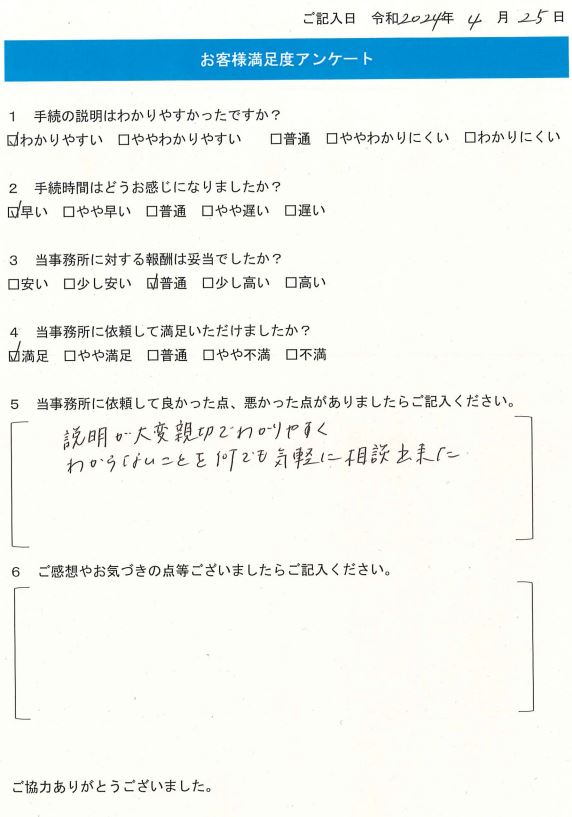 ご記入日　令和2024年　4　月　25日
お客様満足度アンケート
1　手続の説明はわかりやすかったですか？
☑わかりやすい　□ややわかりやすい　　□普通　□ややわかりにくい　□わかりにくい
2　手続時間はどうお感じになりましたか？
☑早い　□やや早い　□普通　□やや遅い　□遅い
3　当事務所に対する報酬は妥当でしたか？
□安い　□少し安い　☑普通　□少し高い　□高い
4　当事務所に依頼して満足いただけましたか？
☑満足　□やや満足　□普通　□やや不満　□不満
5　当事務所に依頼して良かった点、悪かった点がありましたらご記入ください。
説明が大変親切でわかりやすく
わからないことを何でも気軽に相談出来た
6　ご感想やお気づきの点等ございましたらご記入ください。
ご協力ありがとうございました。